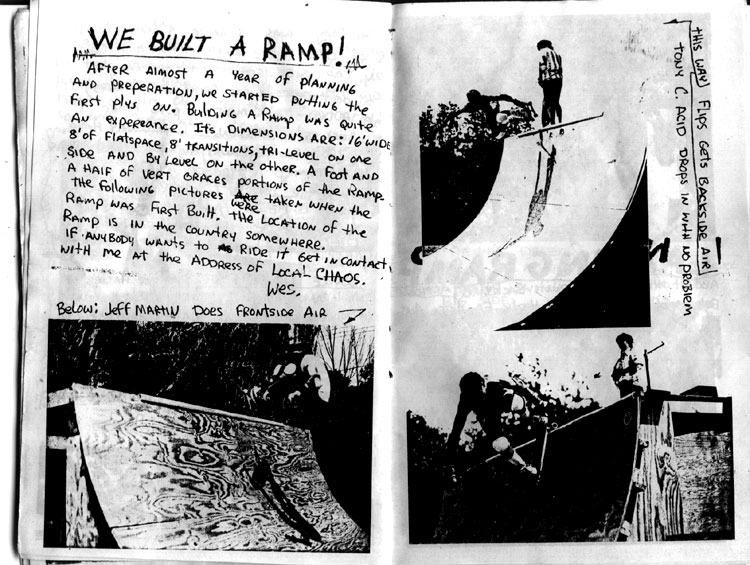 WE BUILT A RAMP!
AFTER ALMOST A YEAR OF PLANNING
AND PREPERATION, WE STARTED PUTTING THE
FIRST PLYS ON. BUILDING A RAMP WAS QUITE
AN EXPEREANCE. ITS DIMENSIONS ARE: 16' WIDE
8' OF FLATSPACE, 8' TRANSITIONS, TRI-LEVEL ON ONE
SIDE AND BY LEVEL ON THE OTHER. A FOOT AND
A HALF OF VERT GRACES PORTIONS OF THE RAMP.
THE FOLLOWING PICTURES WERE TAKEN WHEN THE
RAMP WAS FIRST BUILT. THE LOCATION OF THE
RAMP IS IN THE COUNTRY SOMEWHERE.
IF ANYBODY WANTS TO RIDE IT GET IN CONTACT
WITH ME AT THE ADDRESS OF LOCAL CHAOS.
WES.
BELOW: JEFF MARTIN DOES FRONTSIDE AIR
THIS WAY FLIPS GETS BACKSIDE AIR
TONY C. ACID DROPS IN WITH NO PROBLEM